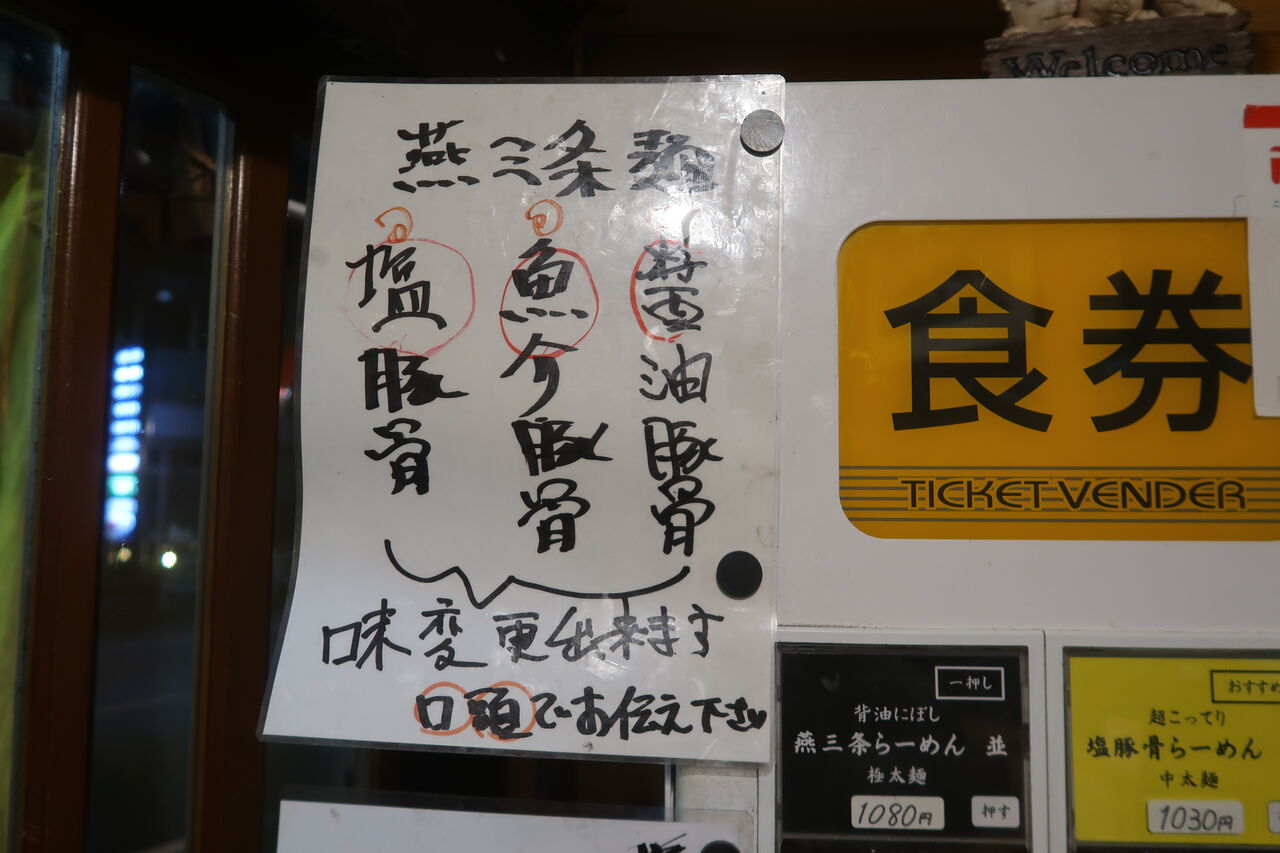 Welcome
燕三条麺
醤油豚骨
魚介豚骨
塩豚骨
味変更出来ます
口頭でお伝え下さい
食券
TICKET VENDER
一押し
背油にぼし
燕三条らーめん 並
極太麺
1080円
押す
おすすめ
超こってり
塩豚骨らーめん
中太麺
1030円